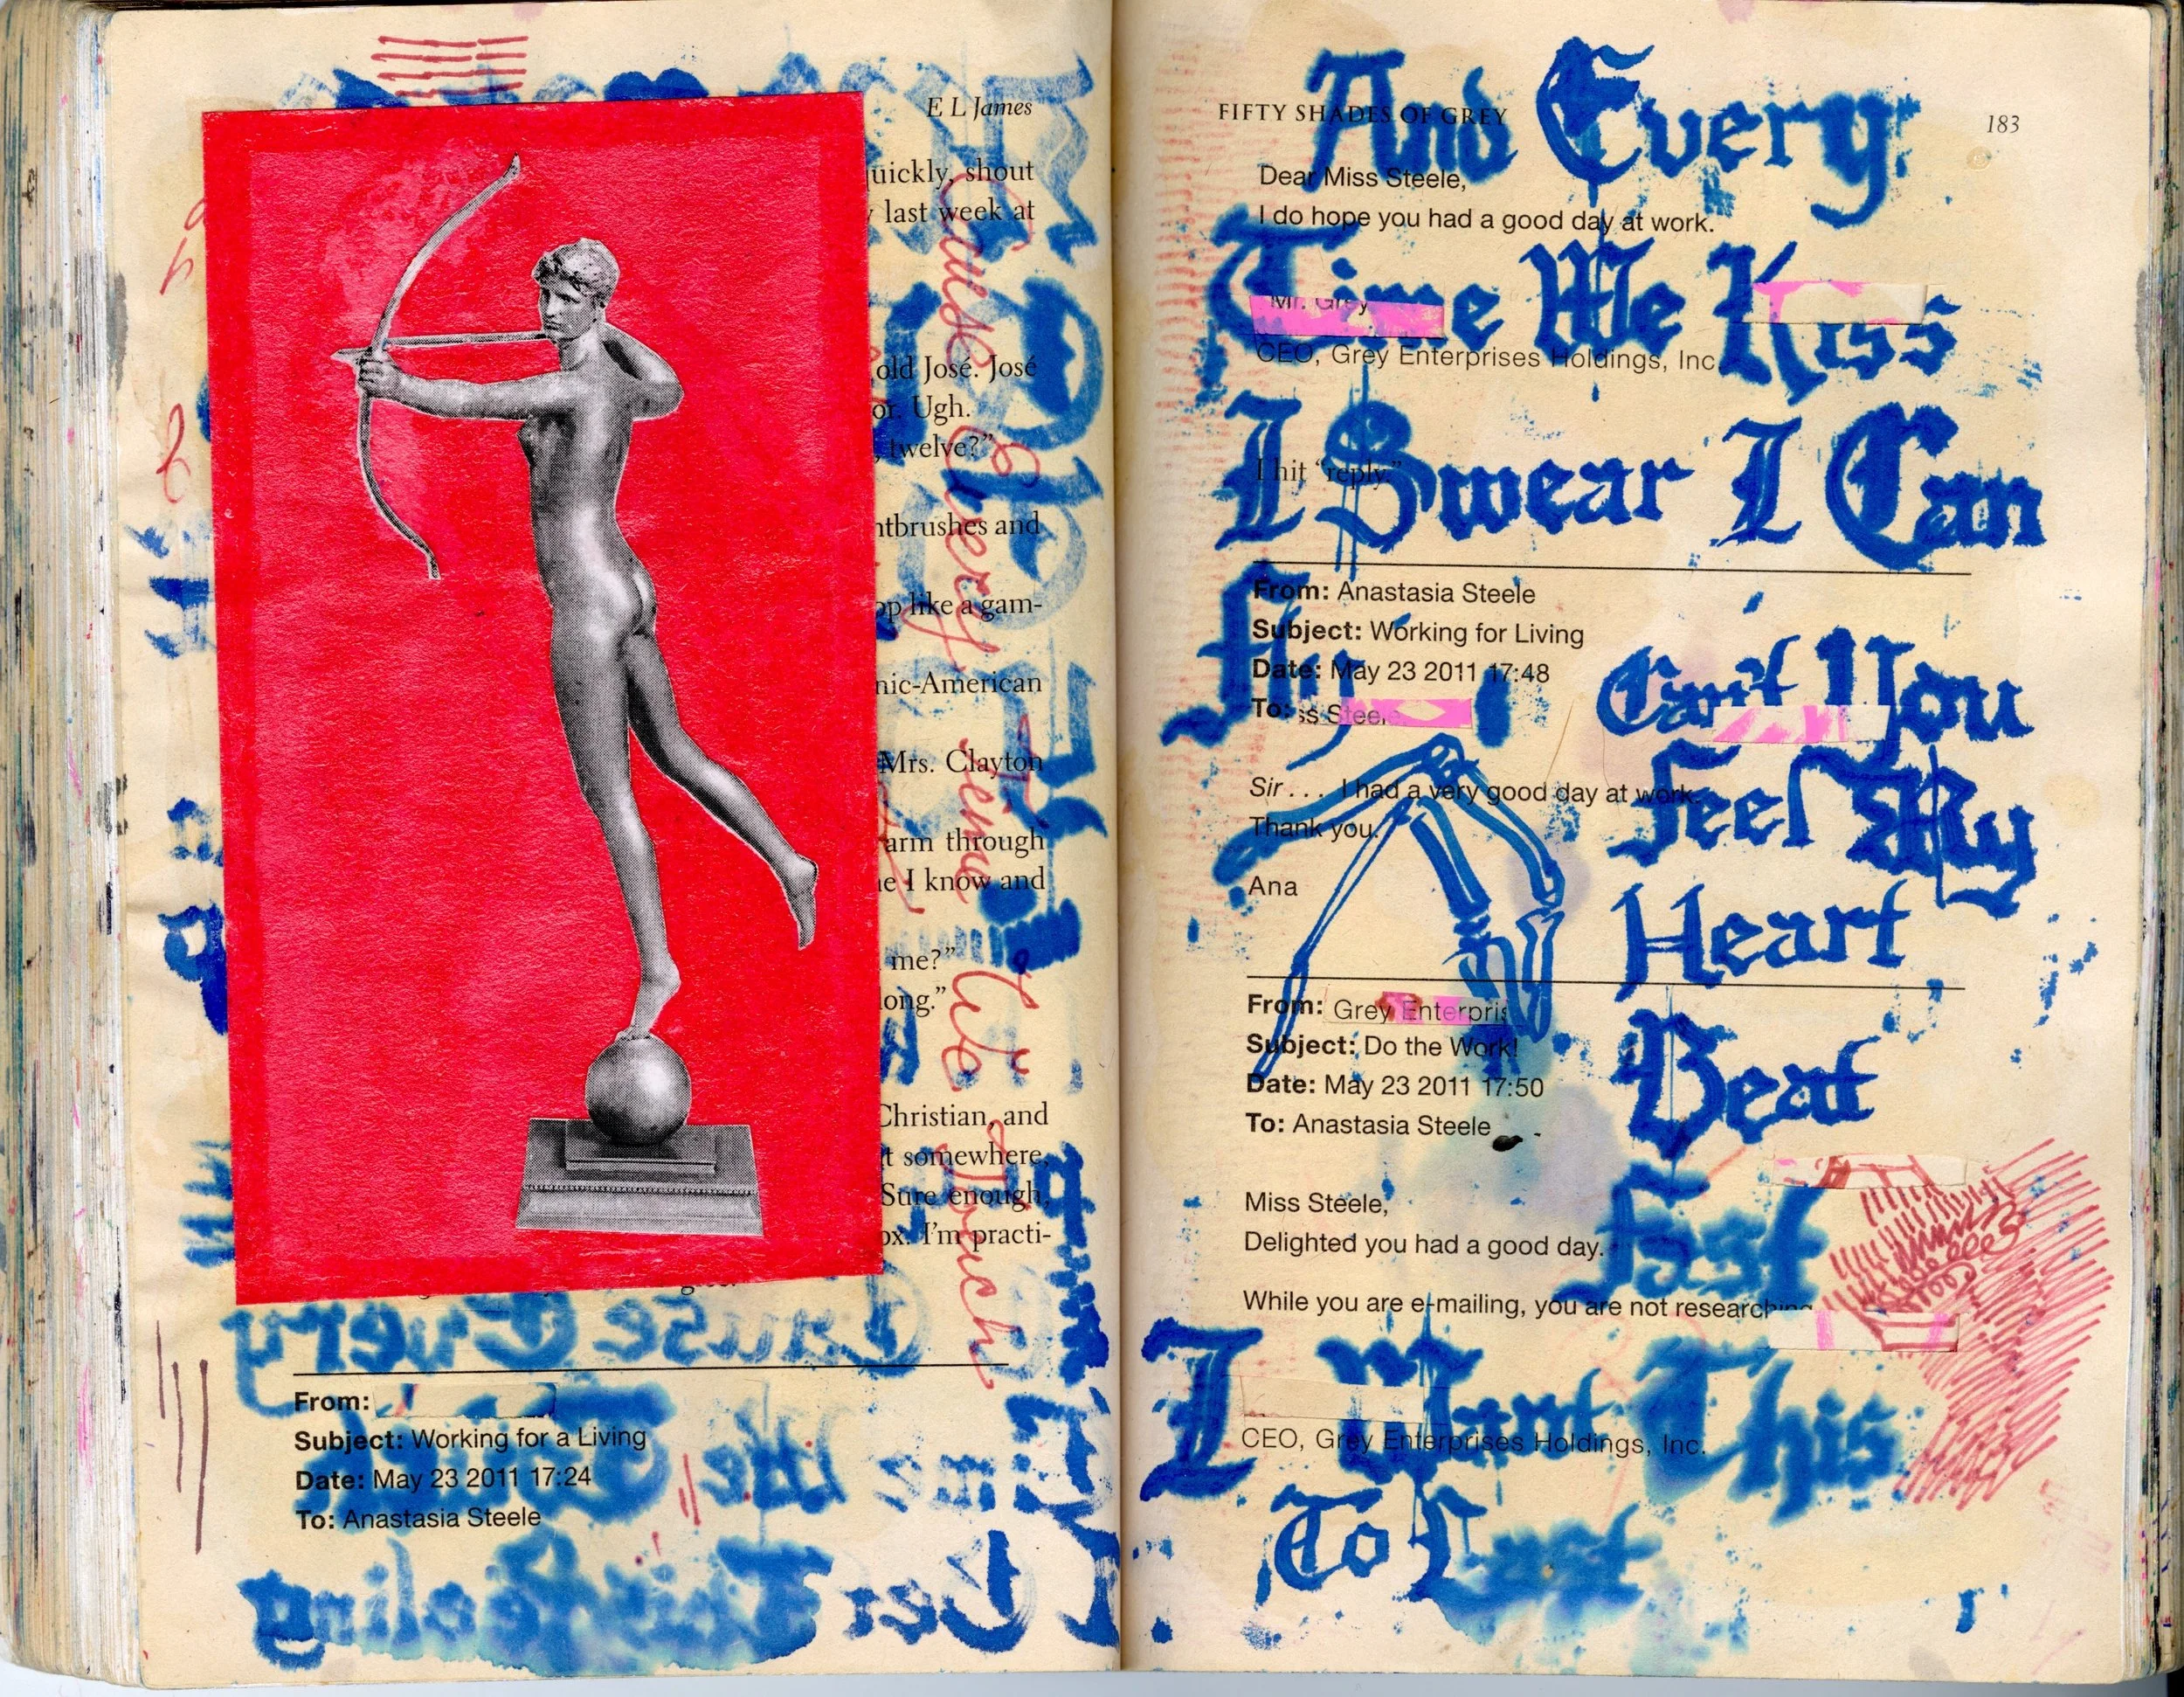 E L James
uickly, shout
last week at
old José. José
or. Ugh.
twelve?”
ntbrushes and
op like a gam-
nic-American
Mrs. Clayton
arm through
e I know and
me?”
long.”
Christian, and
t somewhere,
Sure enough,
ox. I’m practi-
Cause Every
Time We
Touch
Cause Every
From:
Subject: Working for a Living
Date: May 23 2011 17:24
To: Anastasia Steele
Time We Touch
I Get This Feeling
FIFTY SHADES OF GREY
183
And Every
Dear Miss Steele,
I do hope you had a good day at work.
Time We Kiss
Mr. Grey
CEO, Grey Enterprises Holdings, Inc
I Swear I Can
I hit “reply.”
From: Anastasia Steele
Subject: Working for Living
Date: May 23 2011 17:48
To: ss Steele
Fly
Can't You
Feel My
Sir . . . I had a very good day at work.
Thank you.
Ana
Heart
From: Grey Enterpris
Subject: Do the Work!
Date: May 23 2011 17:50
To: Anastasia Steele
Beat
Miss Steele,
Delighted you had a good day.
Fast
While you are e-mailing, you are not researching
I Want This
CEO, Grey Enterprises Holdings, Inc.
To Last